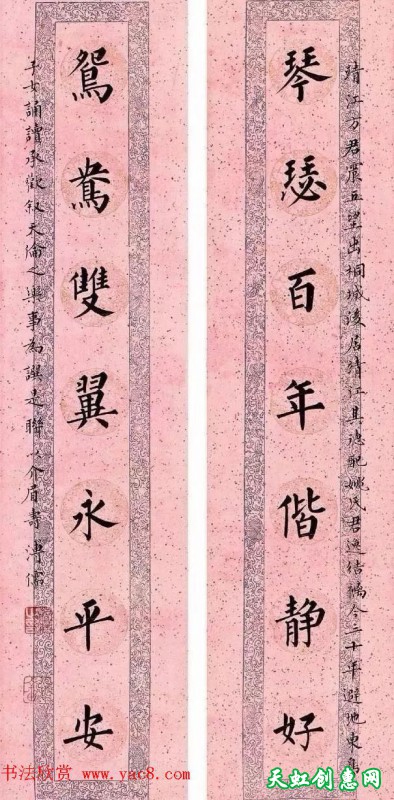 靖江方君震五望出桐城後居靖江其德配姚氏君逸結褵今二十年避地東島
琴瑟百年偕静好
鴛鴦雙翼永平安
子女誦讀承歡叙天倫之樂事為譔是聯以介眉壽 溥儒
书法欣赏 www.yac8.com
天虹创惠网